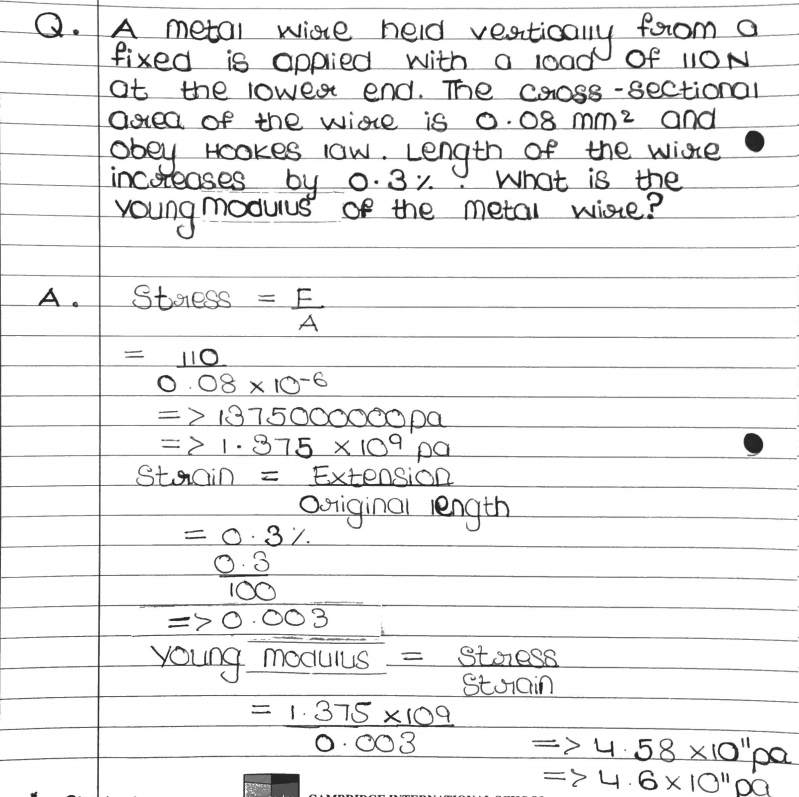 Q. A metal wire held vertically from a
fixed is applied with a load of 110N
at the lower end. The cross-sectional
area of the wire is 0.08 mm² and
obey HOOKES law. Length of the wire
increases by 0.3%. What is the
young modulus of the metal wire?
A. Stress = F
A
= 110
0.08 × 10⁻⁶
=> 1375000000pa
=> 1.375 × 10⁹ pa
Strain = Extension
Original length
= 0.3%
0.3
100
=> 0.003
Young modulus = Stress
Strain
= 1.375 ×10⁹
0.003 => 4.58 ×10¹¹pa
=> 4.6×10¹¹pa